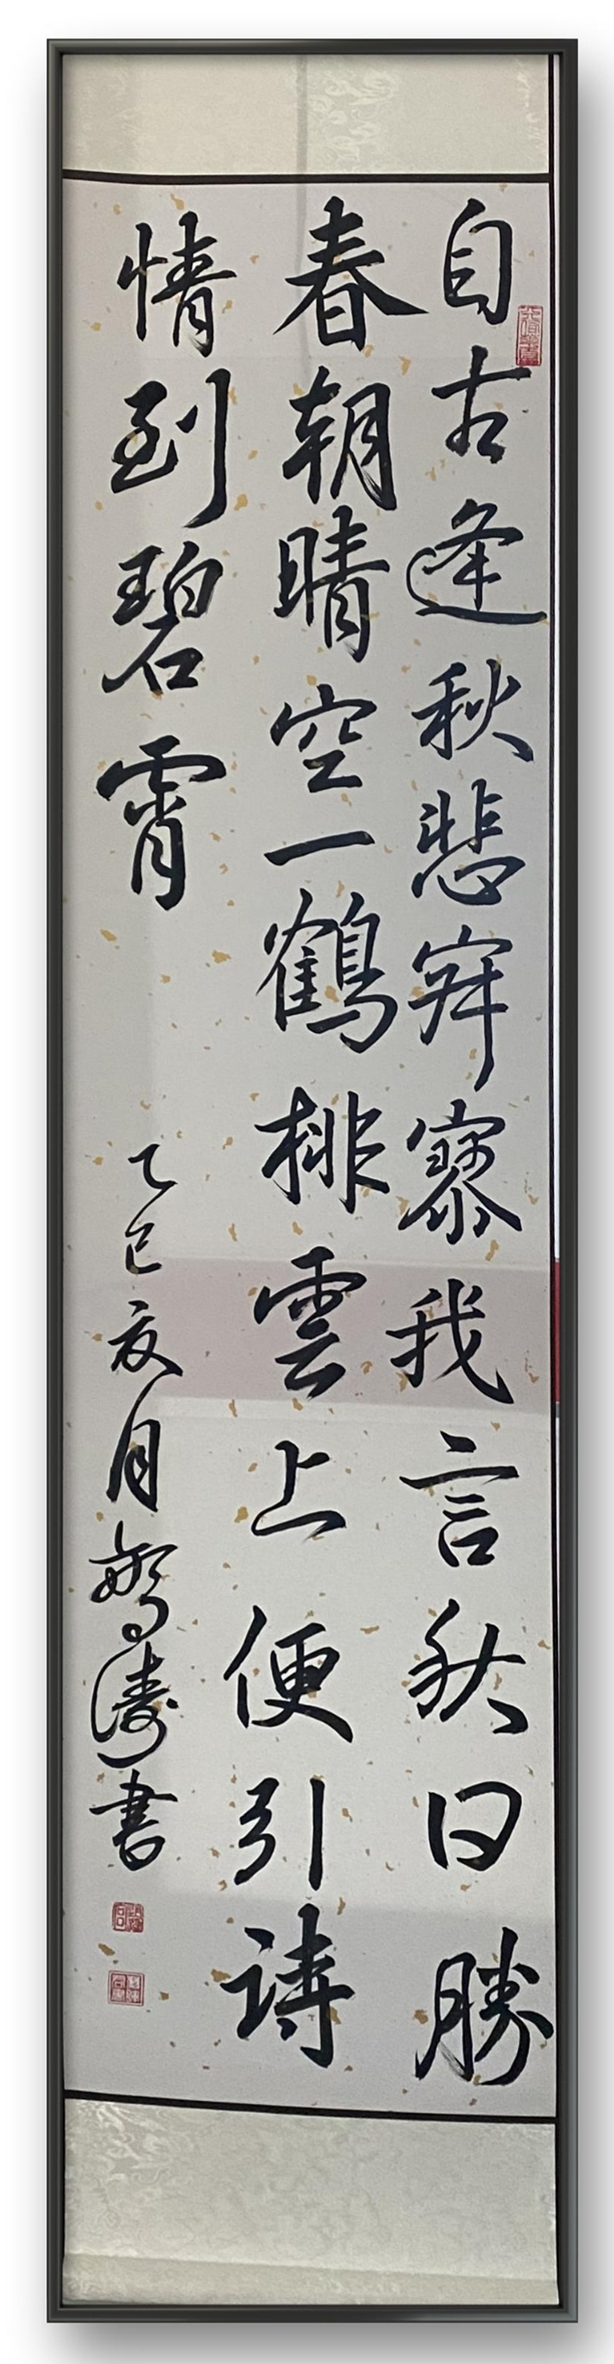 自古逢秋悲寂寥我言秋日勝
春朝晴空一鶴排雲上便引詩
情到碧霄
乙巳夏月濤書